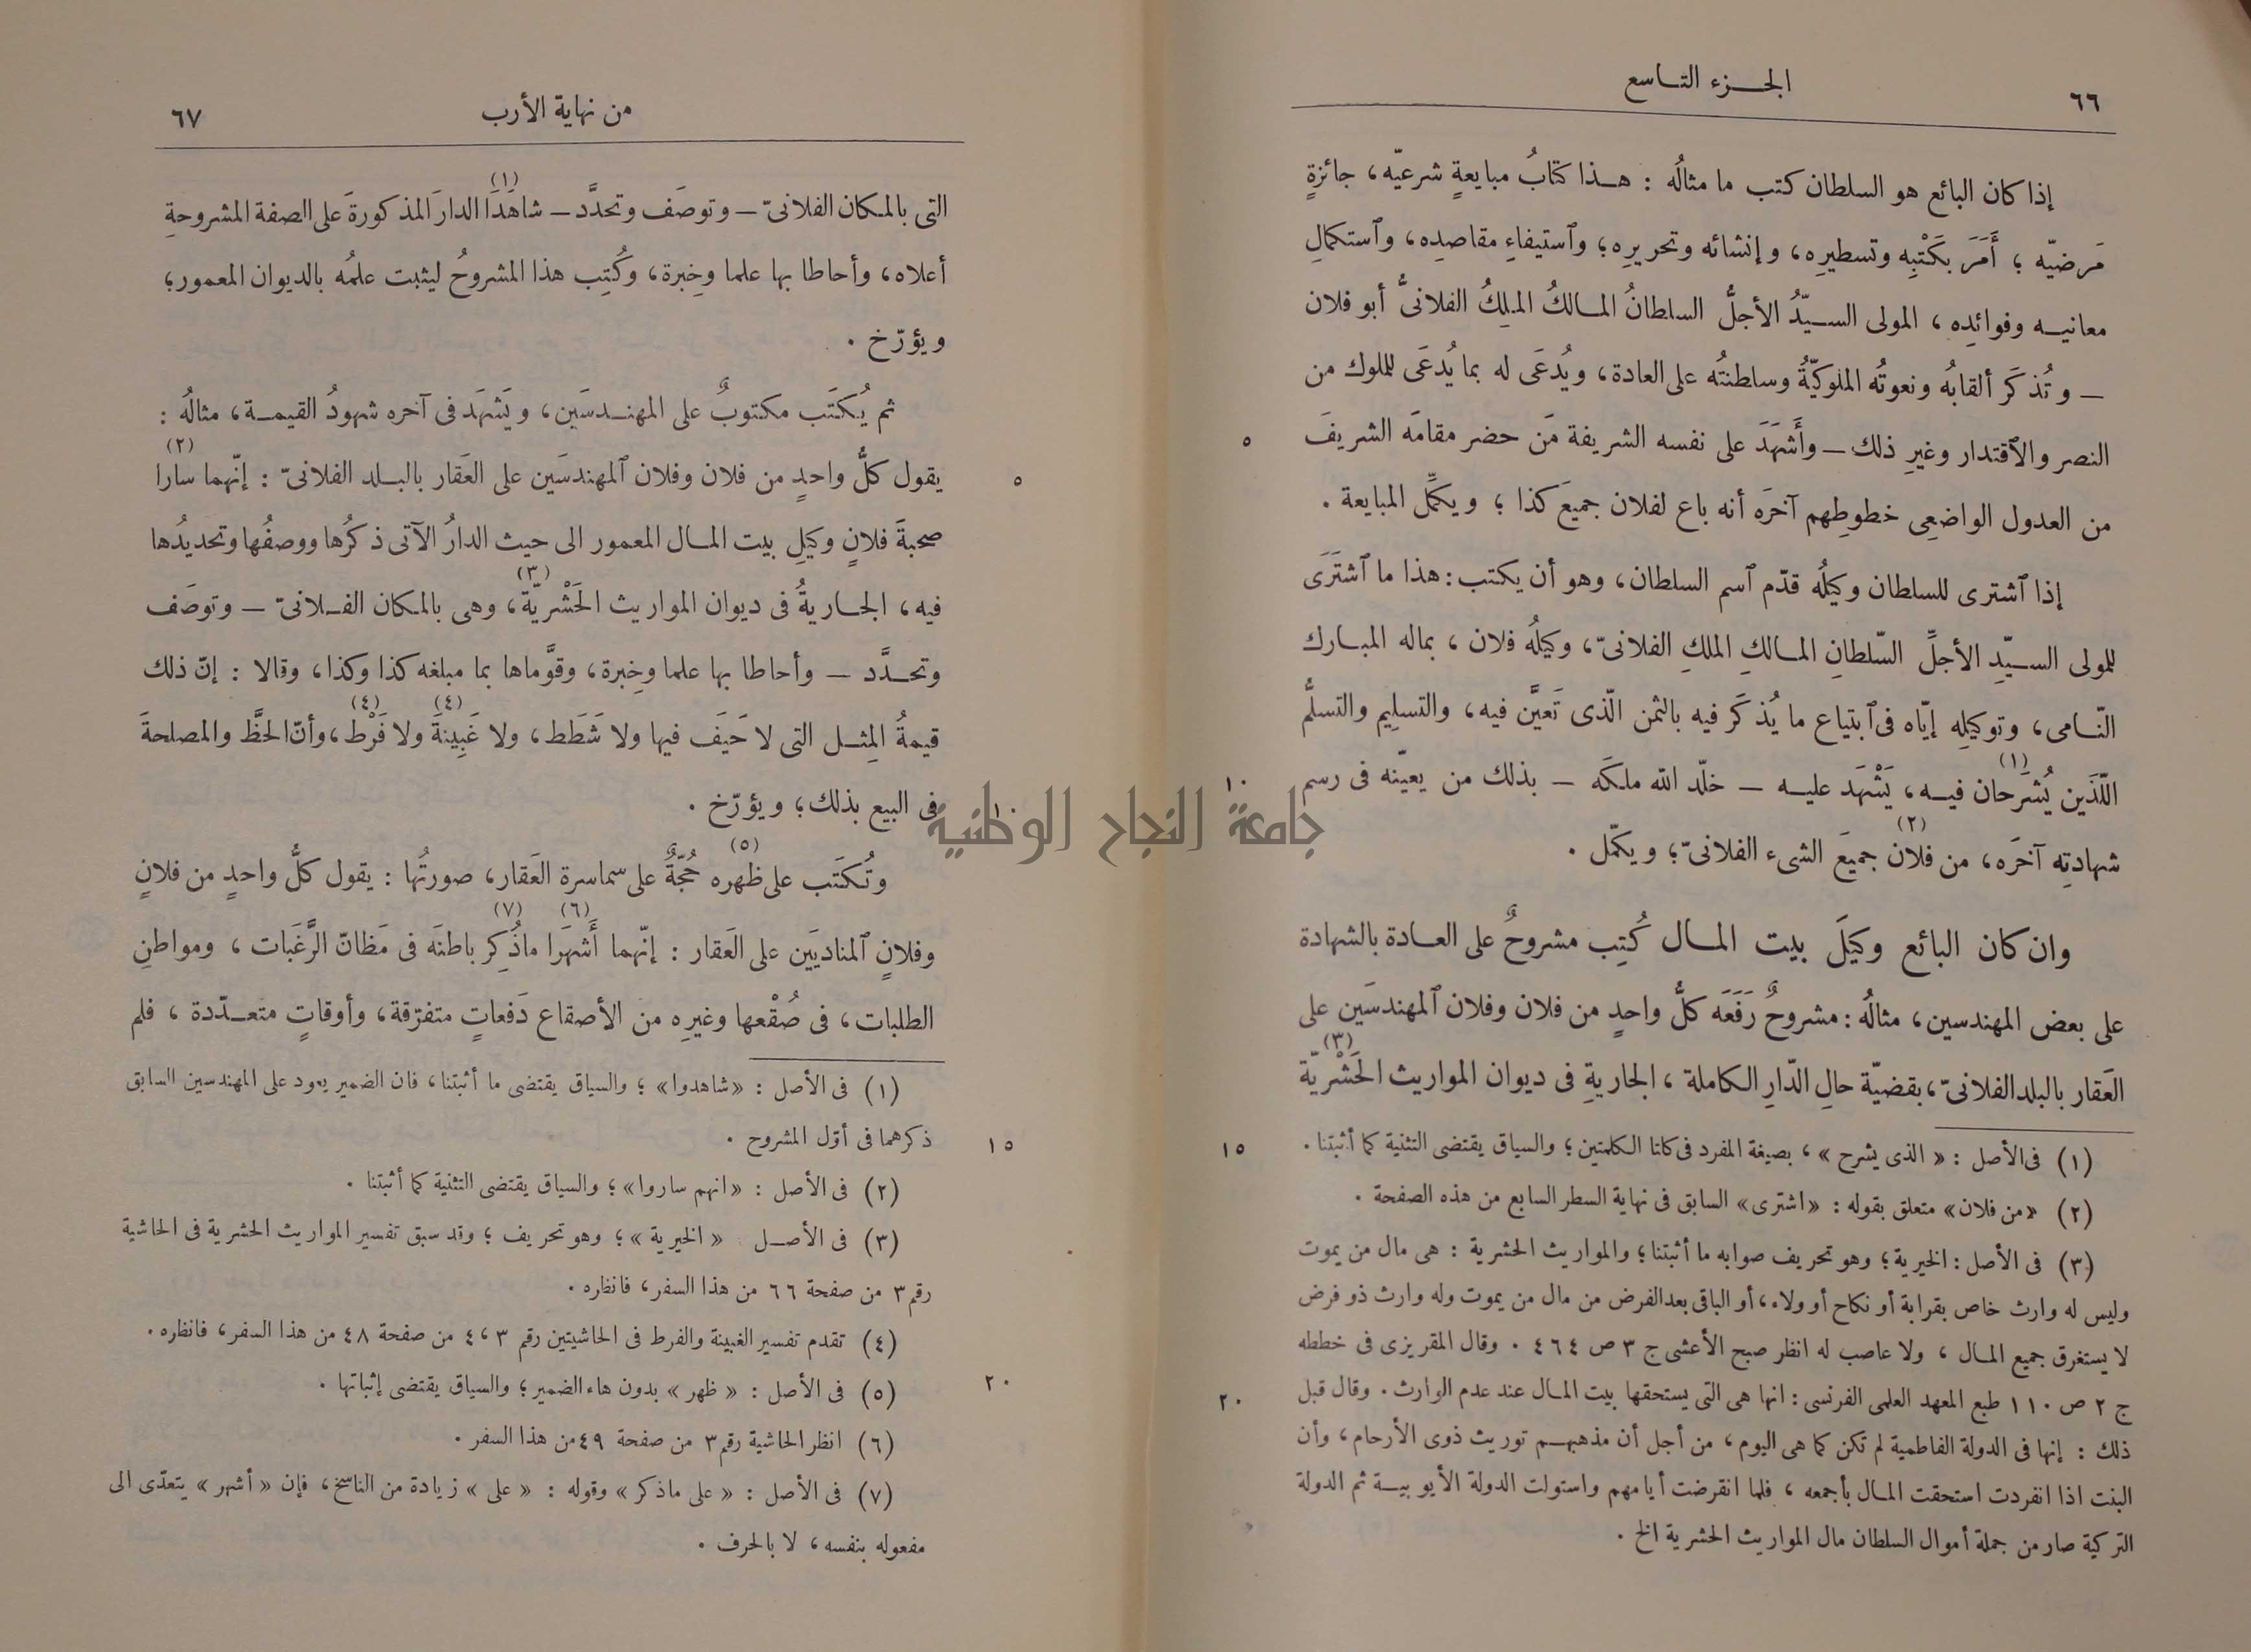 ٦٦
الجزء التاسع
إذا كان البائع هو السلطان كتب ما مثالُه : هذا كتابُ مبايعةٍ شرعيّه، جائزةٍ
مَرضيّه ؛ أَمَرَ بكَتْبِه وتسطيرِه، وإنشائه وتحريرِه؛ وٱستيفاءِ مقاصدِه، وٱستكمالِ
معانيه وفوائدِه، المولى السيّدُ الأجلُّ السلطانُ المالكُ الملِكُ الفلانىُّ أبو فلان
— وتُذكَر ألقابُه ونعوتُه الملوكيّةُ وساطنتُه على العادة، ويُدعَى له بما يُدعَى للملوك من
النصر والاقتدار وغيرِ ذلك — وأَشهَدَ على نفسه الشريفة مَن حضر مقامَه الشريفَ
٥
من العدول الواضعِى خطوطِهم آخرَه أنه باع لفلان جميعَ كذا ؛ ويكمِّل المبايعة .
إذا ٱشترى للسلطان وكيلُه قدّم ٱسم السلطان، وهو أن يكتب: هذا ما ٱشتَرَى
للمولى السيّدِ الأجلِّ السّلطانِ المالكِ الملكِ الفلانىّ، وكيلُه فلان، بماله المبارك
النّامى، وتوكيلِه إيّاه فى ٱبتياع ما يُذكَر فيه بالثمن الّذى تَعيَّن فيه، والتسليم والتسلُّم
اللّذَين يُشرَحان (١) فيه، يَشْهَد عليه — خلّد الله ملكَه — بذلك من يعيّنه فى رسم
١٠
شهادتِه آخرَه، من فلان (٢) جميعَ الشىء الفلانىّ؛ ويكمّل .
وان كان البائع وكيلَ بيت المال كُتِب مشروحٌ على العادة بالشهادة
على بعض المهندسين، مثالُه : مشروحٌ رَفَعَه كلُّ واحدٍ من فلان وفلان ٱلمهندسَين على
العَقار بالبلد الفلانىّ، بقضيّة حالِ الدّارِ الكاملة، الجاريةِ فى ديوان المواريث الحَشْريّة (٣)
(١) فى الأصل : « الذى يشرح » ، بصيغة المفرد فى كلتا الكلمتين؛ والسياق يقتضى التثنية كما أثبتنا .
١٥
(٢) «من فلان» متعلق بقوله : «اشترى» السابق فى نهاية السطر السابع من هذه الصفحة .
(٣) فى الأصل : الخيرية؛ وهو تحريف صوابه ما أثبتنا؛ والمواريث الحشرية : هى مال من يموت
وليس له وارث خاص بقرابة أو نكاح أو ولاء، أو الباقى بعد الفرض من مال من يموت وله وارث ذو فرض
لا يستغرق جميع المال ، ولا عاصب له انظر صبح الأعشى ج ٣ ص ٤٦٤ . وقال المقريزى فى خططه
ج ٢ ص ١١٠ طبع المعهد العلمى الفرنسى : انها هى التى يستحقها بيت المال عند عدم الوارث . وقال قبل
٢٠
ذلك : إنها فى الدولة الفاطمية لم تكن كما هى اليوم ، من أجل أن مذهبهم توريث ذوى الأرحام ، وأن
البنت اذا انفردت استحقت المال بأجمعه ، فلما انقرضت أيامهم واستولت الدولة الأيوبية ثم الدولة
التركية صار من جملة أموال السلطان مال المواريث الحشرية الخ .
من نهاية الأرب
٦٧
التى بالمكان الفلانىّ — وتوصَف وتحدَّد — شاهَدَا (١) الدارَ المذكورةَ على الصفة المشروحةِ
أعلاه، وأحاطا بها علما وخِبرة، وكُتِب هذا المشروحُ ليثبت علمُه بالديوان المعمور؛
ويؤرّخ .
ثم يُكتَب مكتوبٌ على المهندسَين، ويَشهَد فى آخره شهودُ القيمة، مثالُه :
يقول كلُّ واحدٍ من فلان وفلان ٱلمهندسَين على العَقار بالبلد الفلانىّ : إنّهما سارا (٢)
٥
صحبةَ فلانٍ وكيلِ بيت المال المعمور الى حيث الدارُ الآتى ذكرُها ووصفُها وتحديدُها
فيه، الجاريةُ فى ديوان المواريث الحَشْريّة (٣)، وهى بالمكان الفلانىّ — وتوصَف
وتحدَّد — وأحاطا بها علما وخِبرة، وقوَّماها بما مبلغه كذا وكذا، وقالا : إنّ ذلك
قيمةُ المِثل التى لا حَيَف فيها ولا شَطَط، ولا غَبِينةَ (٤) ولا فَرْط (٤)، وأنّ الحظَّ والمصلحةَ
فى البيع بذلك؛ ويؤرّخ .
١٠
وتُكتَب على ظهره (٥) حُجّةٌ على سماسرة العَقار، صورتُها : يقول كلُّ واحدٍ من فلانٍ
وفلانٍ ٱلمناديَين على العَقار : إنّهما أَشهَرا (٦) ما ذُكِر (٧) باطنَه فى مَظانّ الرَّغَبات ، ومواطنِ
الطلبات، فى صُقْعها وغيرِه من الأصقاع دَفعاتٍ متفرّقة، وأوقاتٍ متعدّدة ، فلم
(١) فى الأصل : «شاهدوا» ؛ والسياق يقتضى ما أثبتنا، فان الضمير يعود على المهندسين السابق
ذكرهما فى أوّل المشروح .
١٥
(٢) فى الأصل : «انهم ساروا» ؛ والسياق يقتضى التثنية كما أثبتنا .
(٣) فى الأصل : «الخيرية» ؛ وهو تحريف ؛ وقد سبق تفسير المواريث الحشرية فى الحاشية
رقم ٣ من صفحة ٦٦ من هذا السفر، فانظره .
(٤) تقدم تفسير الغبينة والفرط فى الحاشيتين رقم ٣ ، ٤ من صفحة ٤٨ من هذا السفر، فانظره .
(٥) فى الأصل : « ظهر » بدون هاء الضمير ؛ والسياق يقتضى إثباتها .
٢٠
(٦) انظر الحاشية رقم ٣ من صفحة ٤٩ من هذا السفر .
(٧) فى الأصل : «على ماذكر» وقوله : «على» زيادة من الناسخ، فإن «أشهر» يتعدّى الى
مفعوله بنفسه، لا بالحرف .
جامعة النجاح الوطنية